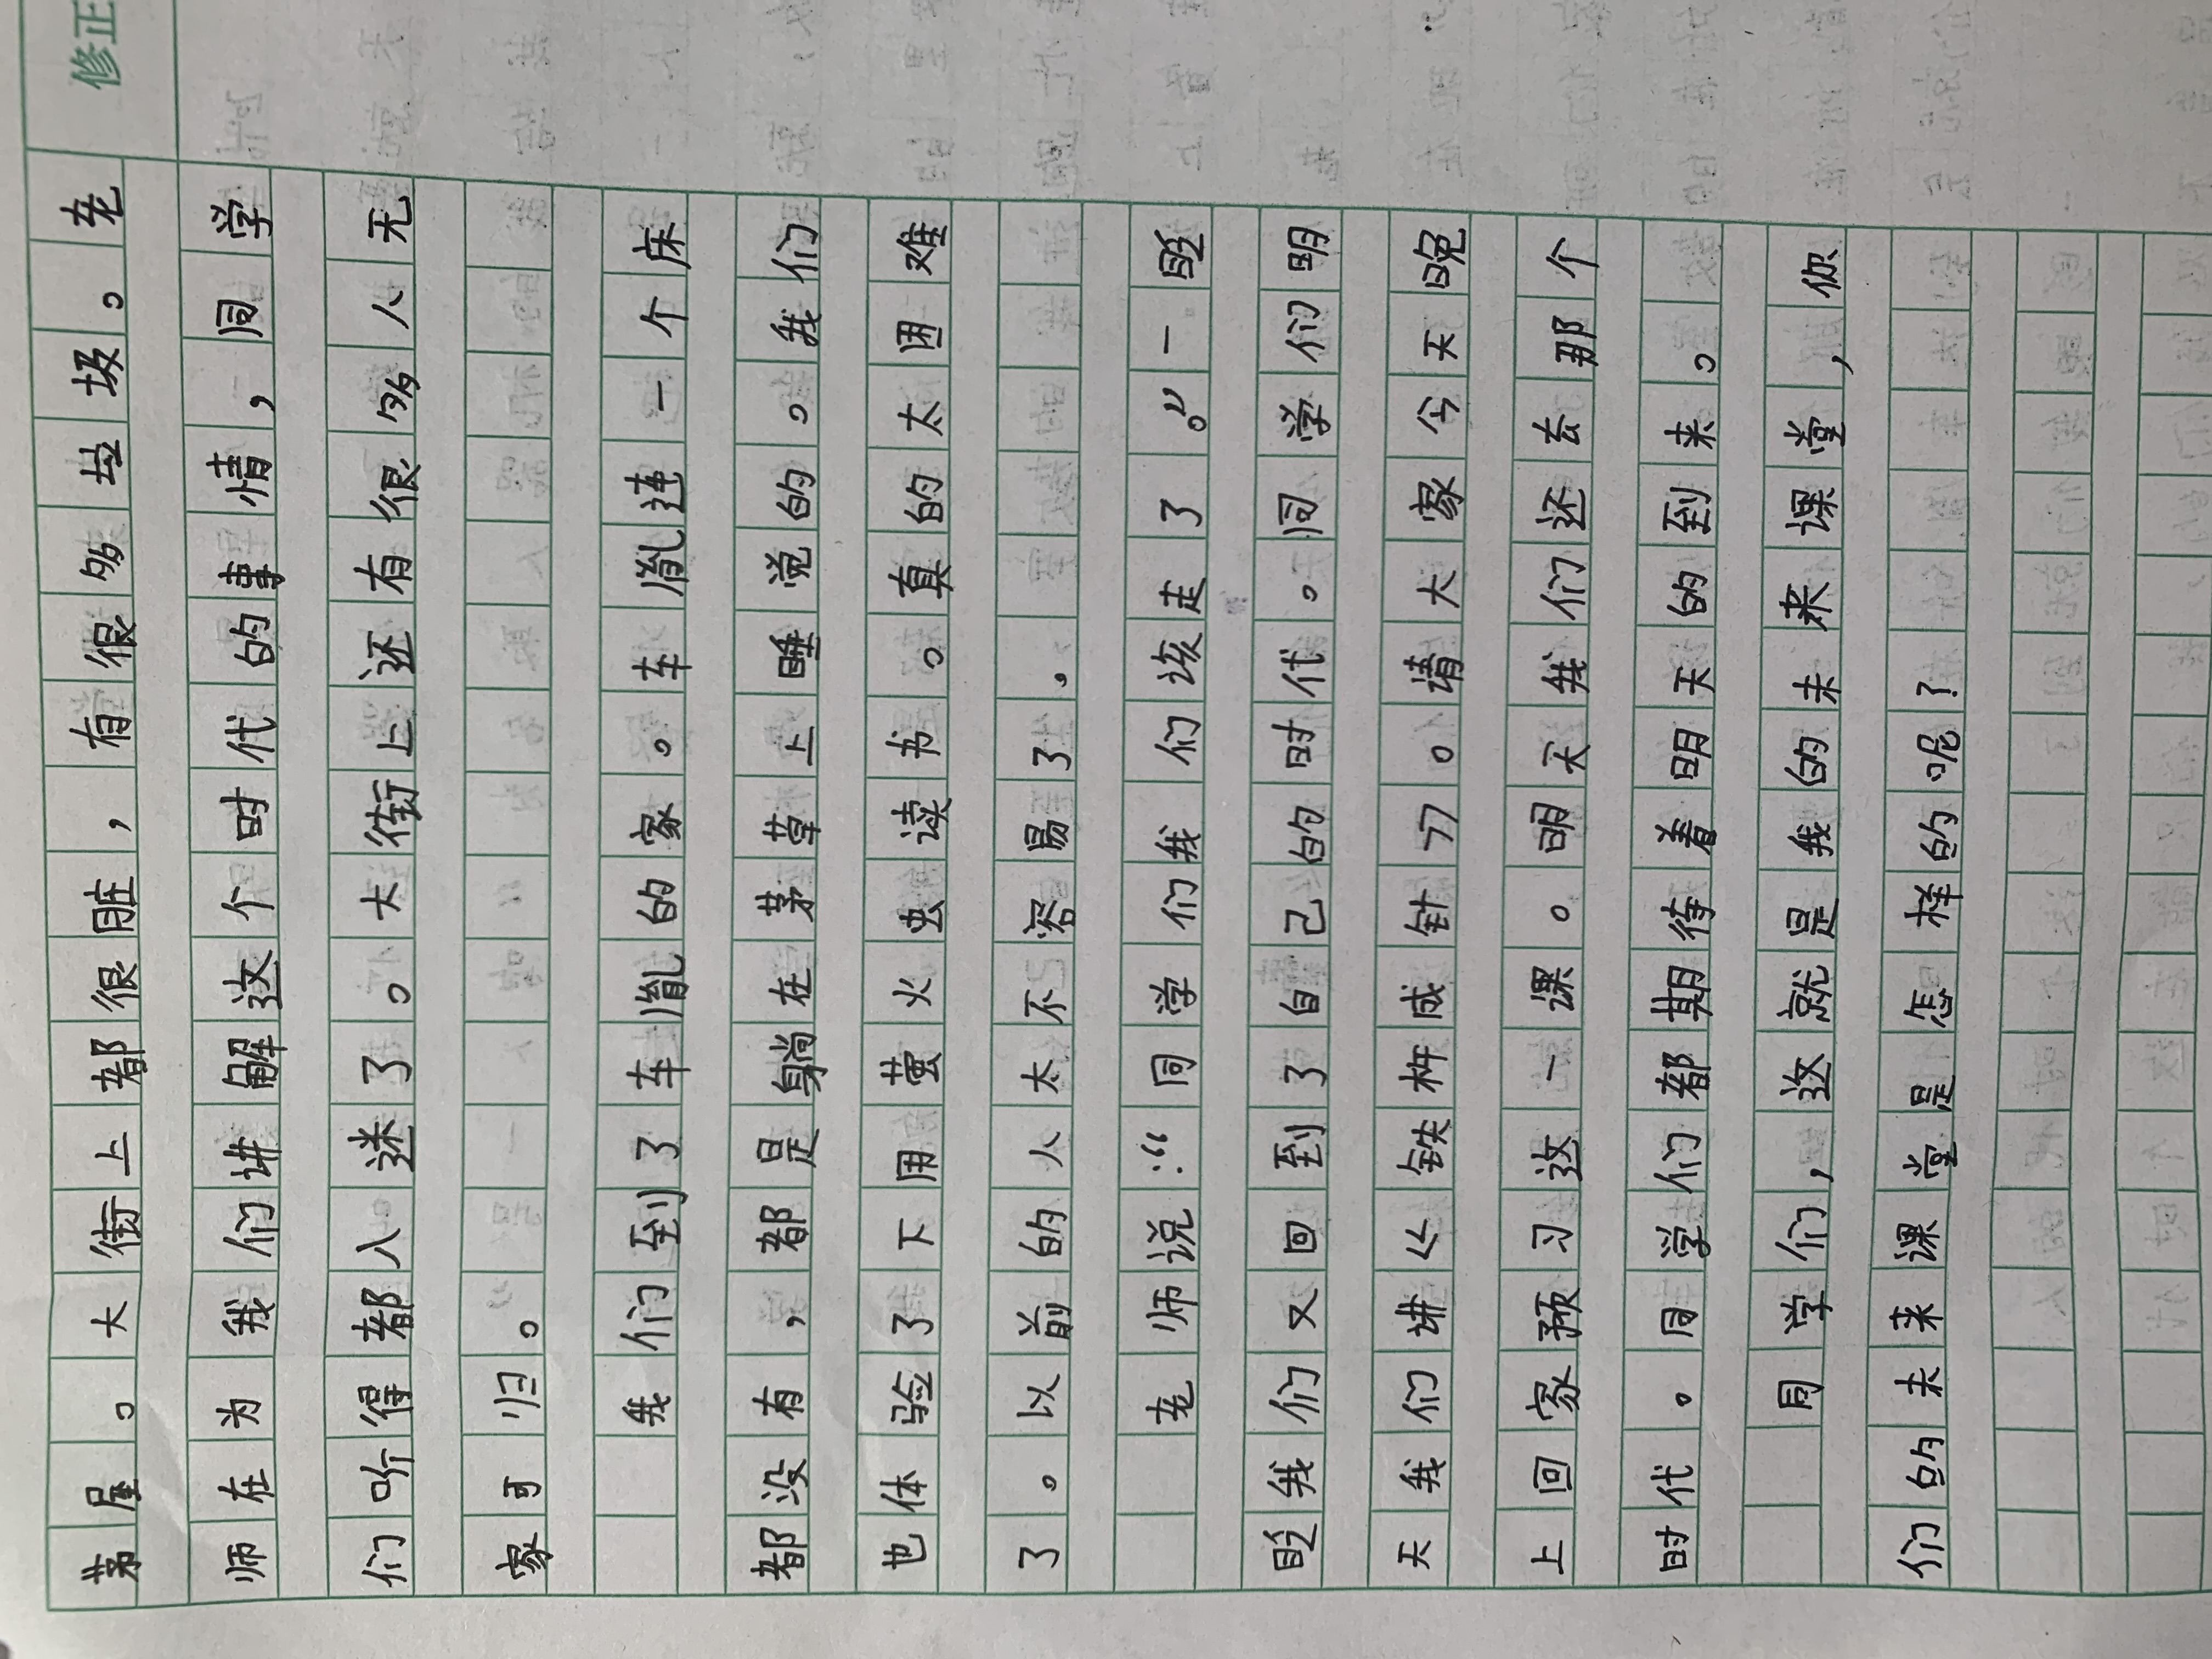 修正
茅屋。大街上都很脏，有很多垃圾。老
师在为我们讲解这个时代的事情，同学
们听得都入迷了。大街上还有很多人无
家可归。
我们到了车胤的家。车胤连一个床
都没有，都是躺在茅草上睡觉的。我们
也体验了下用萤火虫读书。真的太困难
了。以前的人太不容易了。
老师说：“同学们我们该走了。”一眨
眨我们又回到了自己的时代。同学们明
天我们讲《铁杵成针》。请大家今天晚
上回家预习这一课。明天我们还去那个
时代。同学们都期待着明天的到来。
同学们，这就是我的未来课堂，你
们的未来课堂是怎样的呢？